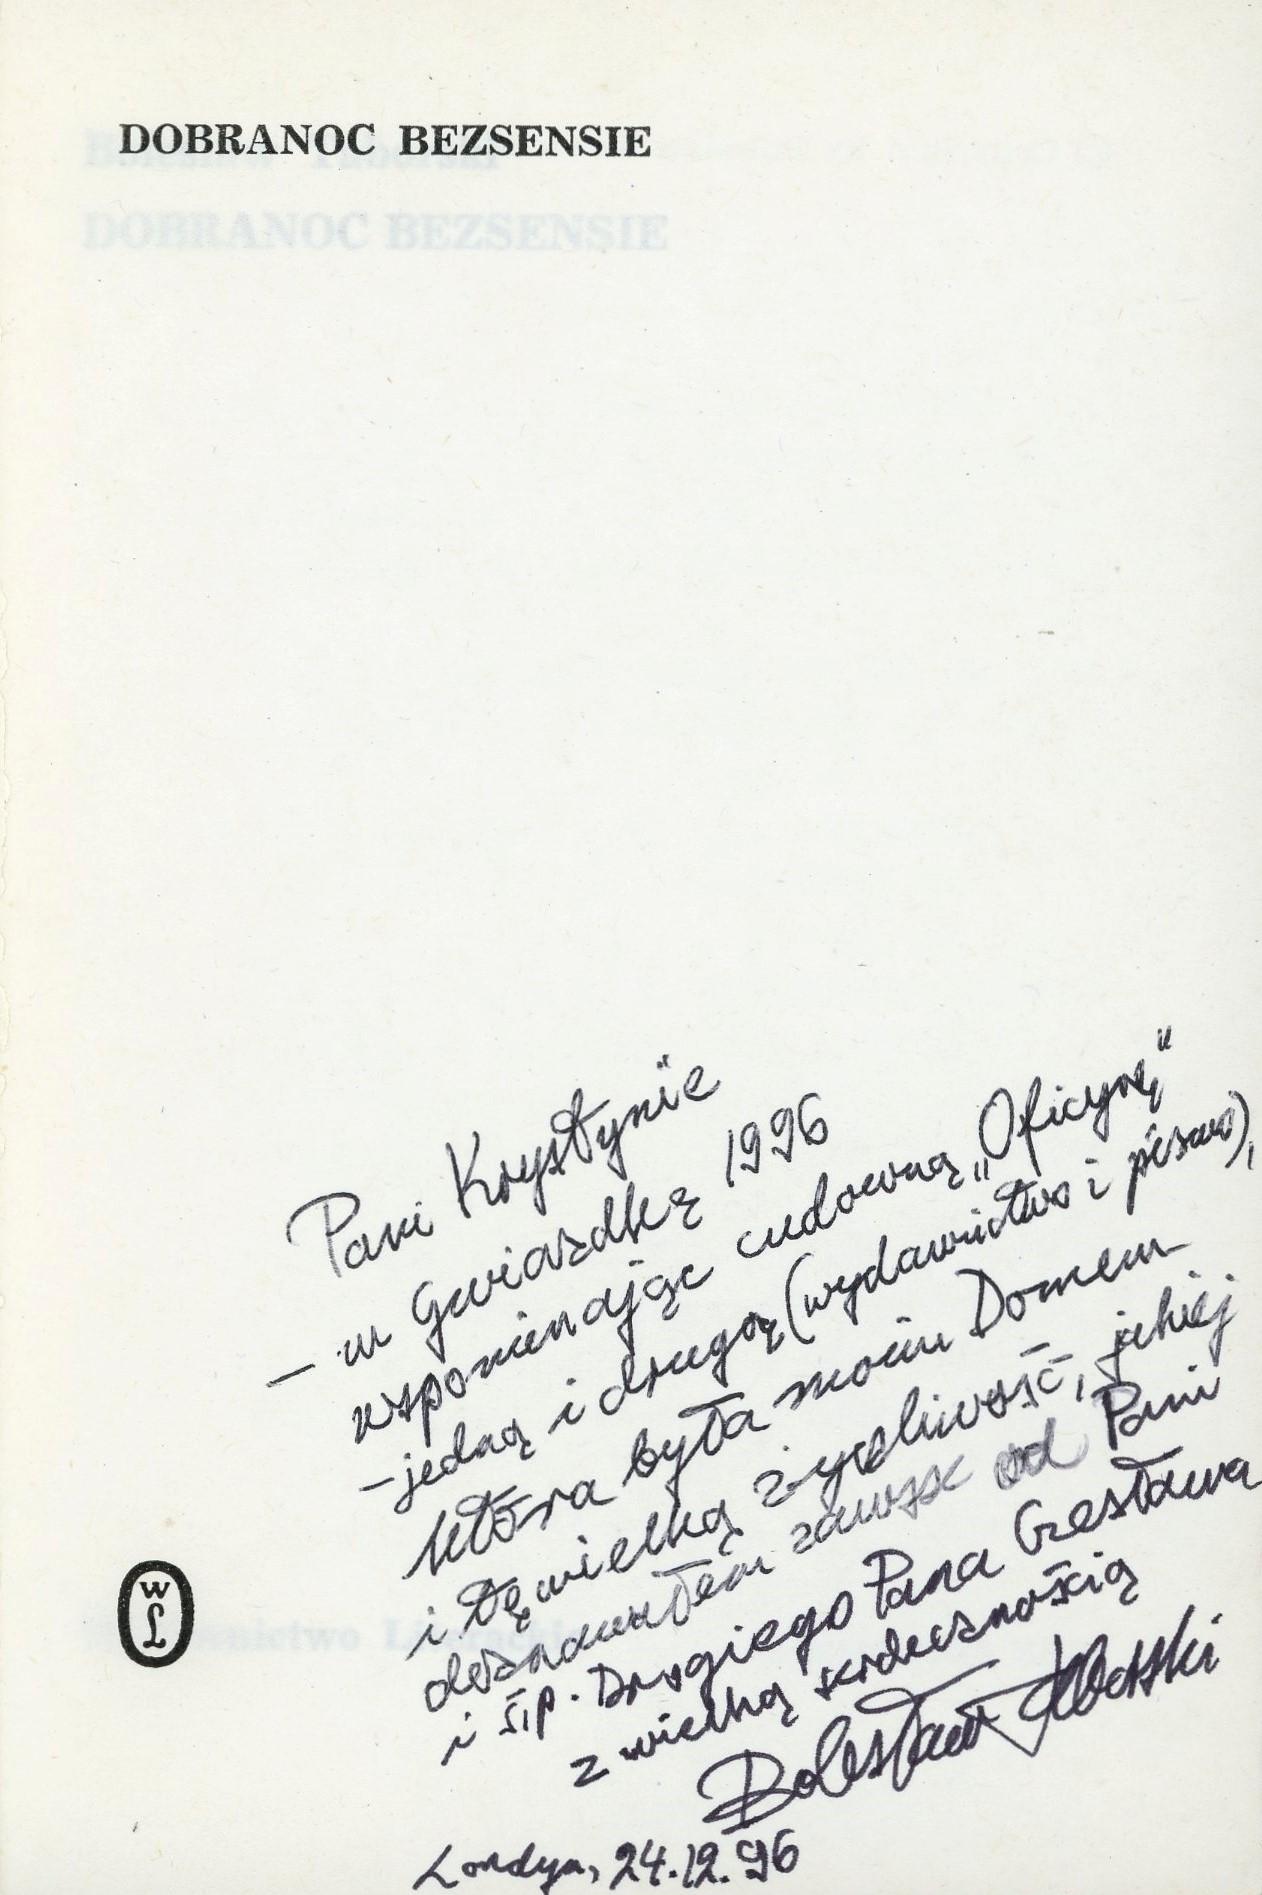 DOBRANOC BEZSENSIE
Bolesław Taborski
DOBRANOC BEZSENSIE
Pani Krystynie
– w Gwiazdkę 1996
wspominając cudowną „Oficynę”
– jedną i drugą (wydawnictwo i pismo),
która była moim Domem
i tę wielką życzliwość, jakiej
doznawałem zawsze od Pani
i śp. Drogiego Pana Czesława
z wielką serdecznością
Bolesław Taborski
Londyn, 24.12.96
W
L
Wydawnictwo Literackie